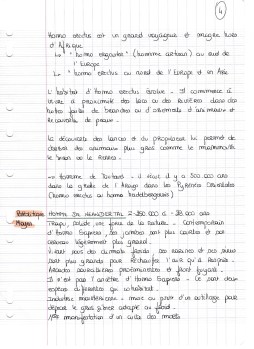 4
Homo erectus est un grand voyageur et migre hors
d'Afrique
↳ "homo ergaster" (homme artisan) au sud de
l'Europe
↳ "homo erectus au nord de l'Europe et en Asie
L'habitat d'Homo erectus évolue. Il commence à
vivre à proximité des lacs ou des rivières dans des
huttes faites de branches ou d'ossements d'animaux et
recouvertes de peaux.
La découverte des lances et du propulseur lui permet de
chasser des animaux plus gros comme le mammouth
le bison ou le renne.
→ homme de Tautavel : il vécut il y a 500 000 ans
dans la grotte de l'Arago dans les Pyrénées Orientales
(homo erectus heidelbergensis)
Paléolithique Moyen
HOMME DE NEANDERTAL : -250 000 à -28 000 ans
Trapu, solide, en force de la nature. Contemporain
d'Homo Sapiens, ses jambes sont plus courtes et son
cerveau légèrement plus grand.
Vivant sous des climats froids, ses narines et ses sinus
sont plus grands pour réchauffer l'air qu'il respire.
Arcades sourcilières proéminentes et front fuyant.
Il n'est pas l'ancêtre d'Homo Sapiens. Ce sont deux
espèces différentes qui cohabitent.
Industrie moustérienne - mais au point d'un outillage pour
dépecer le gros gibier adapté au froid.
1ère manifestation d'un culte des morts